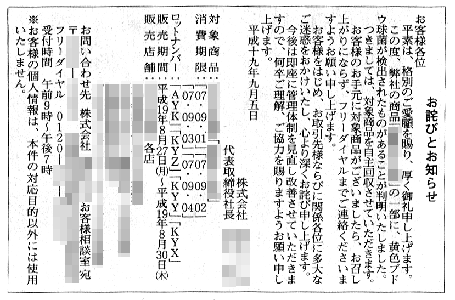 お詫びとお知らせ
お客様各位
平素は、格別のご愛顧を賜り、厚く御礼申し上げます。
この度、弊社の商品　　の一部に、黄色ブド
ウ球菌が検出されたものがあることが判明いたしました。
つきましては、対象商品を自主回収させていただきます。
お客様のお手元に対象商品がございましたら、お召し
上がりにならず、フリーダイヤルまでご連絡くださいま
すようお願い申し上げます。
お客様をはじめ、お取引先様ならびに関係各位に多大な
ご迷惑をおかけいたし、心より深くお詫び申し上げます。
今後は即座に管理体制を見直し改善させていただきま
すので、何卒ご理解、ご協力を賜りますようお願い申し
上げます。
平成十九年九月五日
株式会社
代表取締役社長
対象商品：
消費期限：「07.09.01」「07.09.02」
「07.09.03」「07.09.04」
ロットナンバー：「AYK」「KYZ」「KYY」「KYX」
販売期間：平成19年8月27日(月)～平成19年8月30日(木)
販売店舗：　各店
お問い合わせ先　株式会社　お客様相談室宛
〒
フリーダイヤル　0120-
受付時間　午前9時～午後7時
※お客様の個人情報は、本件の対応目的以外には使用
いたしません。